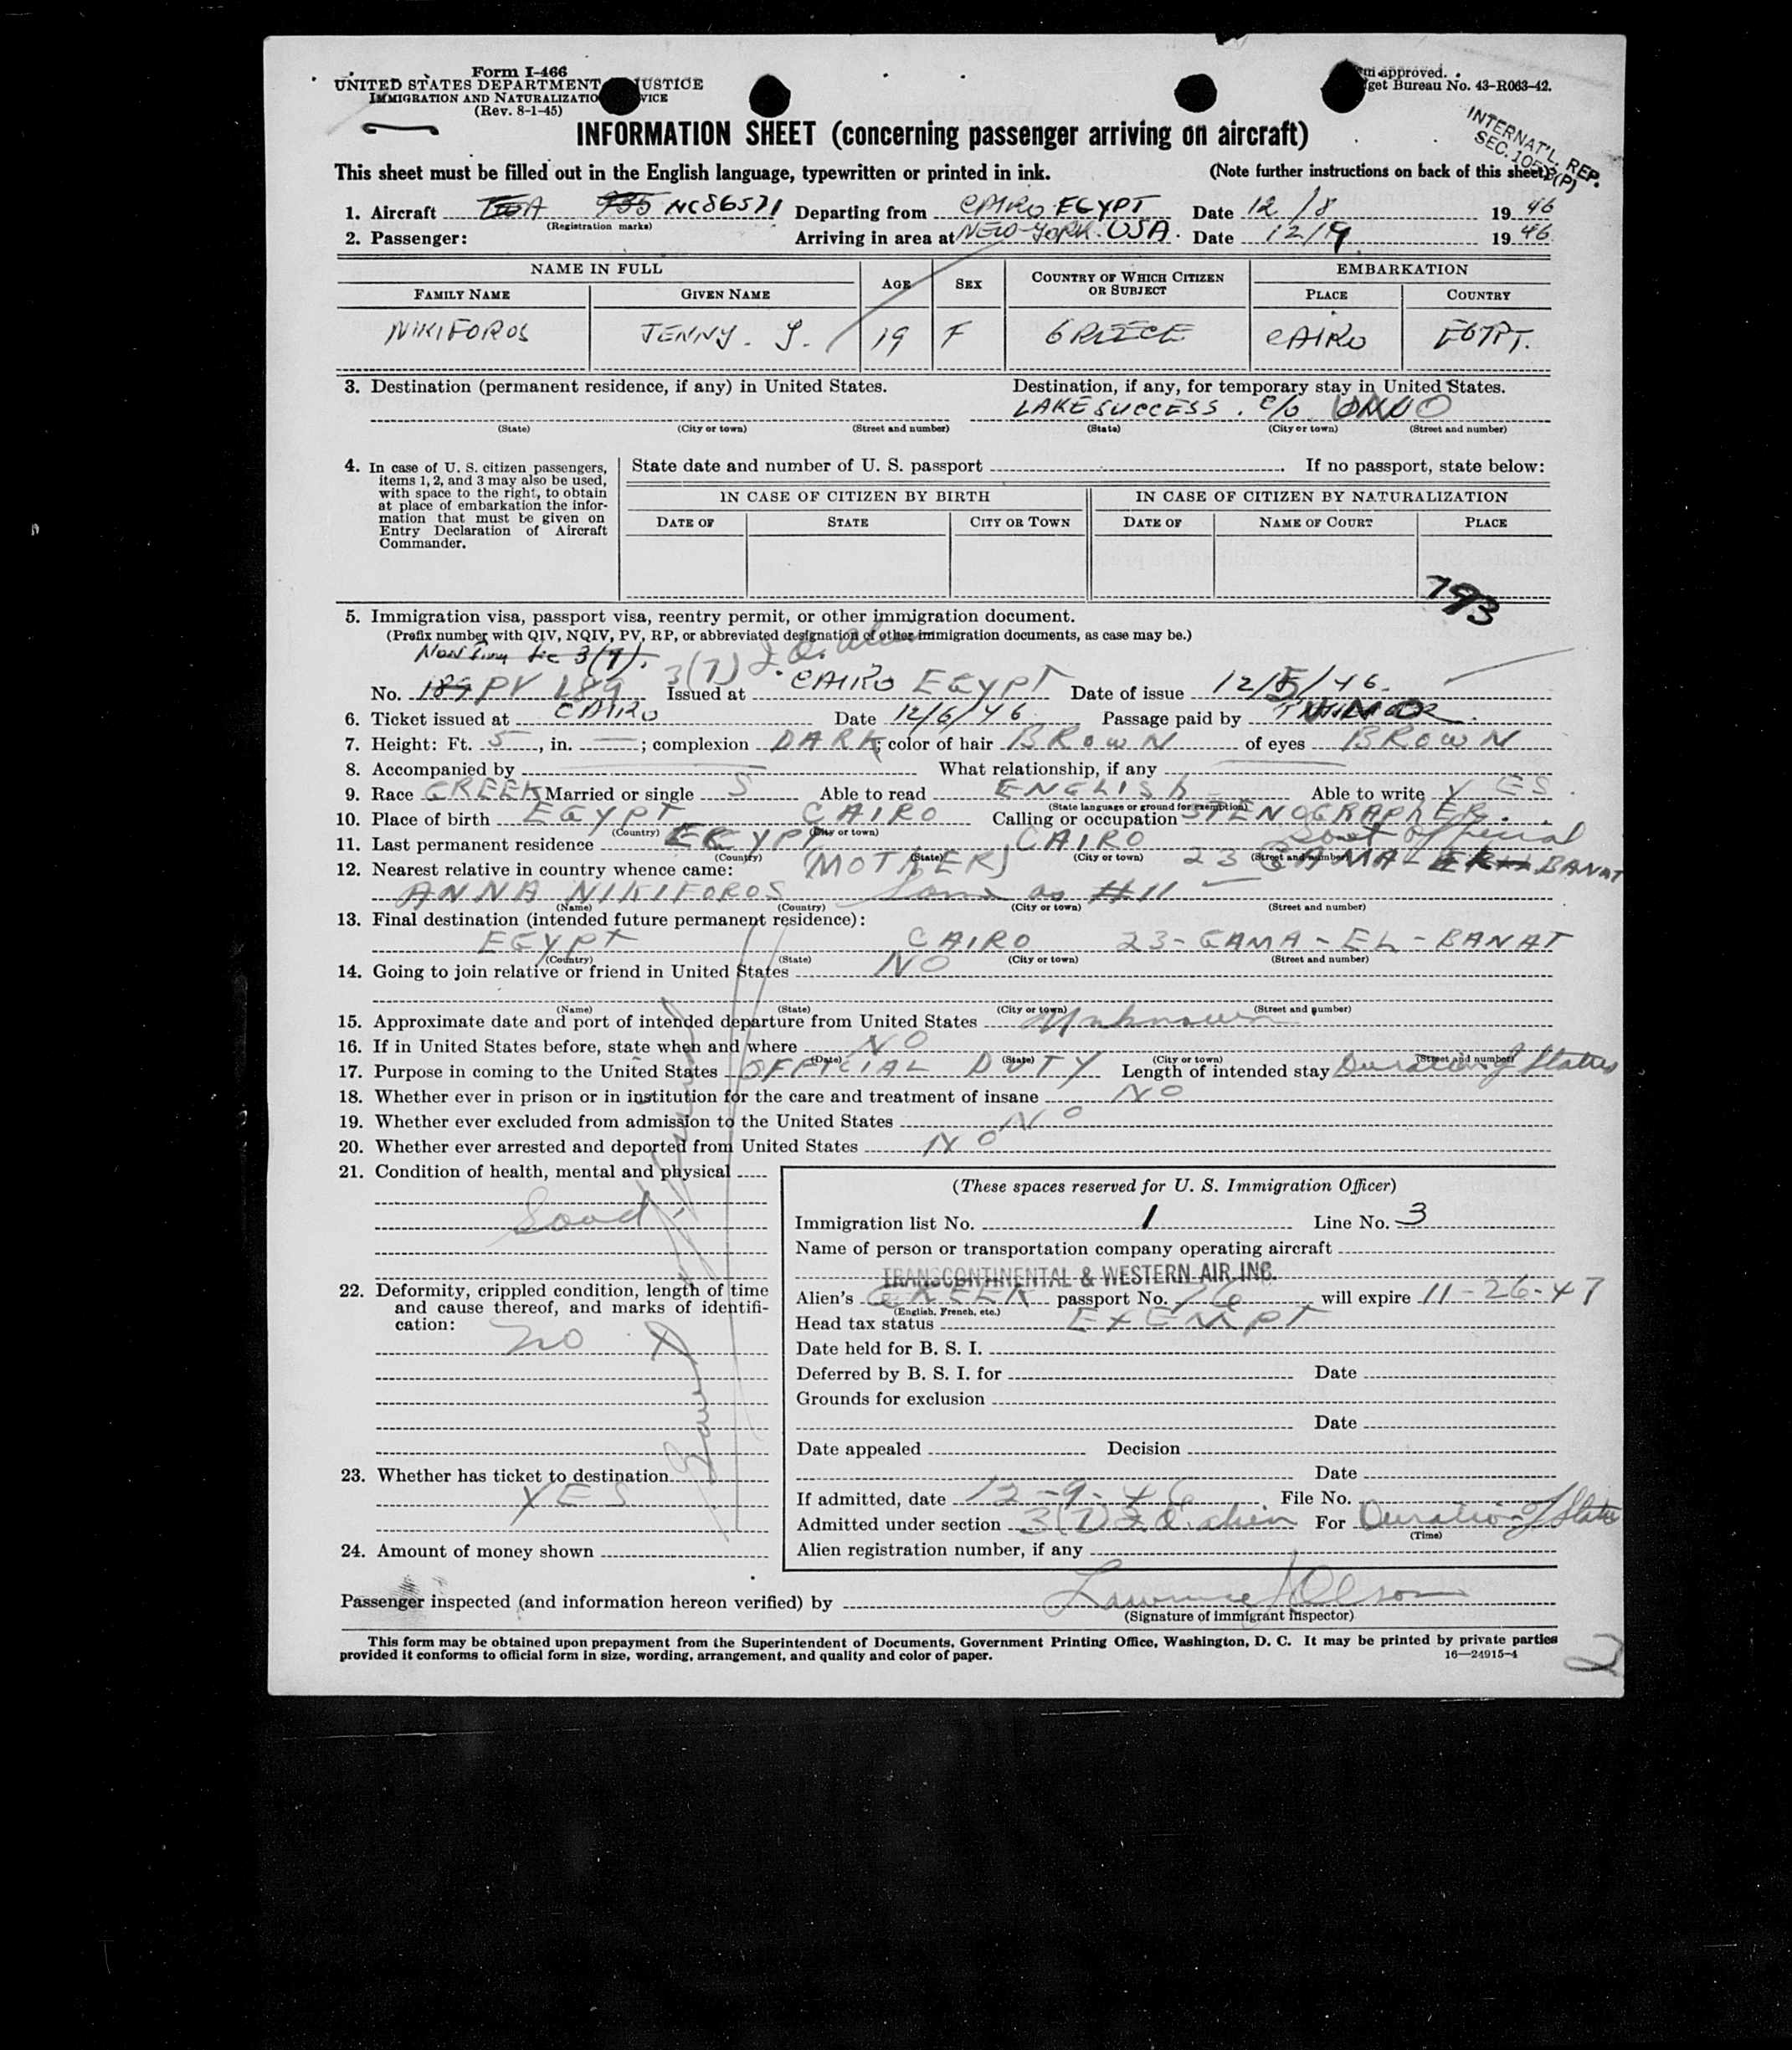 Form I-466
UNITED STATES DEPARTMENT JUSTICE
IMMIGRATION AND NATURALIZATIO VICE
(Rev. 8-1-45)
m approved.
get Bureau No. 43-R063-42.
INTERNAT'L. REP.
INFORMATION SHEET (concerning passenger arriving on aircraft)
This sheet must be filled out in the English language, typewritten or printed in ink. (Note further instructions on back of this sheet)
1. Aircraft NC86571 Departing from CAIRO EGYPT Date 12/8 1946
(Registration marks)
2. Passenger: Arriving in area at NEW-YORK. USA. Date 12/9 1946
NAME IN FULL AGE SEX COUNTRY OF WHICH CITIZEN OR SUBJECT EMBARKATION
FAMILY NAME GIVEN NAME PLACE COUNTRY
NIKIFOROS JENNY. 19 F GREECE CAIRO EGYPT.
3. Destination (permanent residence, if any) in United States. Destination, if any, for temporary stay in United States.
LAKE SUCCESS. c/o
(State) (City or town) (Street and number) (State) (City or town) (Street and number)
4. In case of U. S. citizen passengers, items 1, 2, and 3 may also be used, with space to the right, to obtain at place of embarkation the information that must be given on Entry Declaration of Aircraft Commander.
State date and number of U. S. passport . If no passport, state below:
IN CASE OF CITIZEN BY BIRTH IN CASE OF CITIZEN BY NATURALIZATION
DATE OF STATE CITY OR TOWN DATE OF NAME OF COURT PLACE
793
5. Immigration visa, passport visa, reentry permit, or other immigration document.
(Prefix number with QIV, NQIV, PV, RP, or abbreviated designation of other immigration documents, as case may be.)
3(7)
No. 189 PV 189 Issued at CAIRO EGYPT Date of issue 12/5/46.
6. Ticket issued at CAIRO Date 12/6/46 Passage paid by
7. Height: Ft. 5, in. —; complexion DARK; color of hair BROWN of eyes BROWN
8. Accompanied by What relationship, if any
9. Race GREEK Married or single S Able to read ENGLISH Able to write YES.
(State language or ground for exemption)
10. Place of birth EGYPT CAIRO Calling or occupation STENOGRAPHER.
(Country) (City or town)
11. Last permanent residence EGYPT CAIRO 23 GAMA EL BANAT
(Country) (State) (City or town) (Street and number)
12. Nearest relative in country whence came: (MOTHER)
ANNA NIKIFOROS Same as #11
(Name) (Country) (City or town) (Street and number)
13. Final destination (intended future permanent residence):
EGYPT CAIRO 23-GAMA-EL-BANAT
(Country) (State) (City or town) (Street and number)
14. Going to join relative or friend in United States NO
(Name) (State) (City or town) (Street and number)
15. Approximate date and port of intended departure from United States Unknown
16. If in United States before, state when and where NO
(Date) (State) (City or town) (Street and number)
17. Purpose in coming to the United States OFFICIAL DUTY Length of intended stay Duration of Status
18. Whether ever in prison or in institution for the care and treatment of insane NO
19. Whether ever excluded from admission to the United States NO
20. Whether ever arrested and deported from United States NO
21. Condition of health, mental and physical
Good
22. Deformity, crippled condition, length of time and cause thereof, and marks of identification:
No
23. Whether has ticket to destination
YES
24. Amount of money shown
(These spaces reserved for U. S. Immigration Officer)
Immigration list No. 1 Line No. 3
Name of person or transportation company operating aircraft
TRANSCONTINENTAL & WESTERN AIR, INC.
Alien's GREEK passport No. 76 will expire 11-26-47
(English, French, etc.)
Head tax status EXEMPT
Date held for B. S. I.
Deferred by B. S. I. for Date
Grounds for exclusion
Date
Date appealed Decision
Date
If admitted, date 12-9-46 File No.
Admitted under section 3(7) I.O. alien For Duration of Status
(Time)
Alien registration number, if any
Passenger inspected (and information hereon verified) by Lawrence J Olson
(Signature of immigrant inspector)
This form may be obtained upon prepayment from the Superintendent of Documents, Government Printing Office, Washington, D. C. It may be printed by private parties
provided it conforms to official form in size, wording, arrangement, and quality and color of paper. 16—24915-4
2